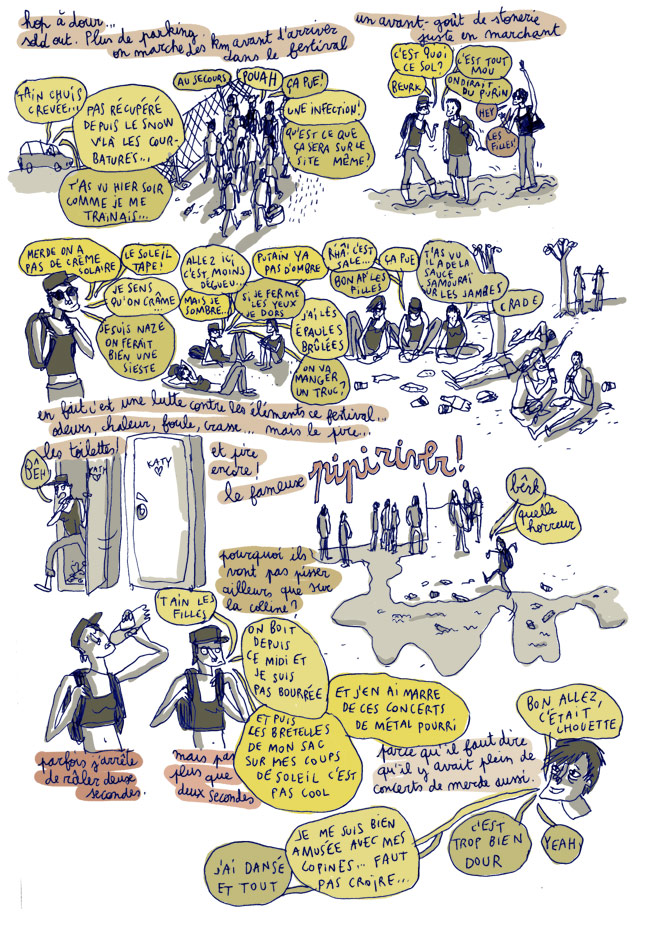 hop à dour...
sold out. Plus de parking.
on marche des km avant d'arriver
dans le festival
un avant-goût de stonerie
juste en marchant
T'AIN CHUIS
CREVÉE...
PAS RÉCUPÉRÉ
DEPUIS LE SNOW
V'LÀ LES COUR-
BATURES...
T'AS VU HIER SOIR
COMME JE ME
TRAINAIS...
AU SECOURS
POUAH
ÇA PUE!
UNE INFECTION!
QU'EST CE QUE
ÇA SERA SUR LE
SITE MÊME?
C'EST QUOI
CE SOL?
BEURK
C'EST TOUT
MOU
ON DIRAIT
DU PURIN
HEY
LES
FILLES!
MERDE ON A
PAS DE CRÈME
SOLAIRE
LE SOLEIL
TAPE!
JE SENS
QU'ON CRÂME
JE SUIS NAZE
ON FERAIT
BIEN UNE
SIESTE
ALLEZ ICI
C'EST MOINS
DÉGUEU...
MAIS JE
SOMBRE...
PUTAIN YA
PAS D'OMBRE
SI JE FERME
LES YEUX
JE DORS
J'AI LES
ÉPAULES
BRÛLÉES
ON VA
MANGER
UN TRUC?
RHÂ! C'EST
SALE...
BON AP' LES
FILLES
ÇA PUE
T'AS VU
IL A DE LA
SAUCE
SAMOURAÏ
SUR LES JAMBES
CRADE
en fait c'est une lutte contre les éléments ce festival...
odeurs, chaleur, foule, crasse... mais le pire...
les toilettes!
BÊH
KATY
KATY
et pire
encore!
la fameuse
pipi river!
bêrk
quelle
horreur
pourquoi ils
vont pas pisser
ailleurs que sur
la colline?
T'AIN LES
FILLES
ON BOIT
DEPUIS
CE MIDI ET
JE SUIS
PAS BOURRÉE
ET J'EN AI MARRE
DE CES CONCERTS
DE MÉTAL POURRI
ET PUIS
LES BRETELLES
DE MON SAC
SUR MES COUPS
DE SOLEIL C'EST
PAS COOL
parfois j'arrête
de râler deux
secondes.
mais pas
plus que
deux secondes
parce qu'il faut dire
qu'il y avait plein de
concerts de merde aussi.
BON ALLEZ,
C'ÉTAIT
CHOUETTE
J'AI DANSÉ
ET TOUT
JE ME SUIS BIEN
AMUSÉE AVEC MES
COPINES... FAUT
PAS CROIRE...
C'EST
TROP BIEN
DOUR
YEAH